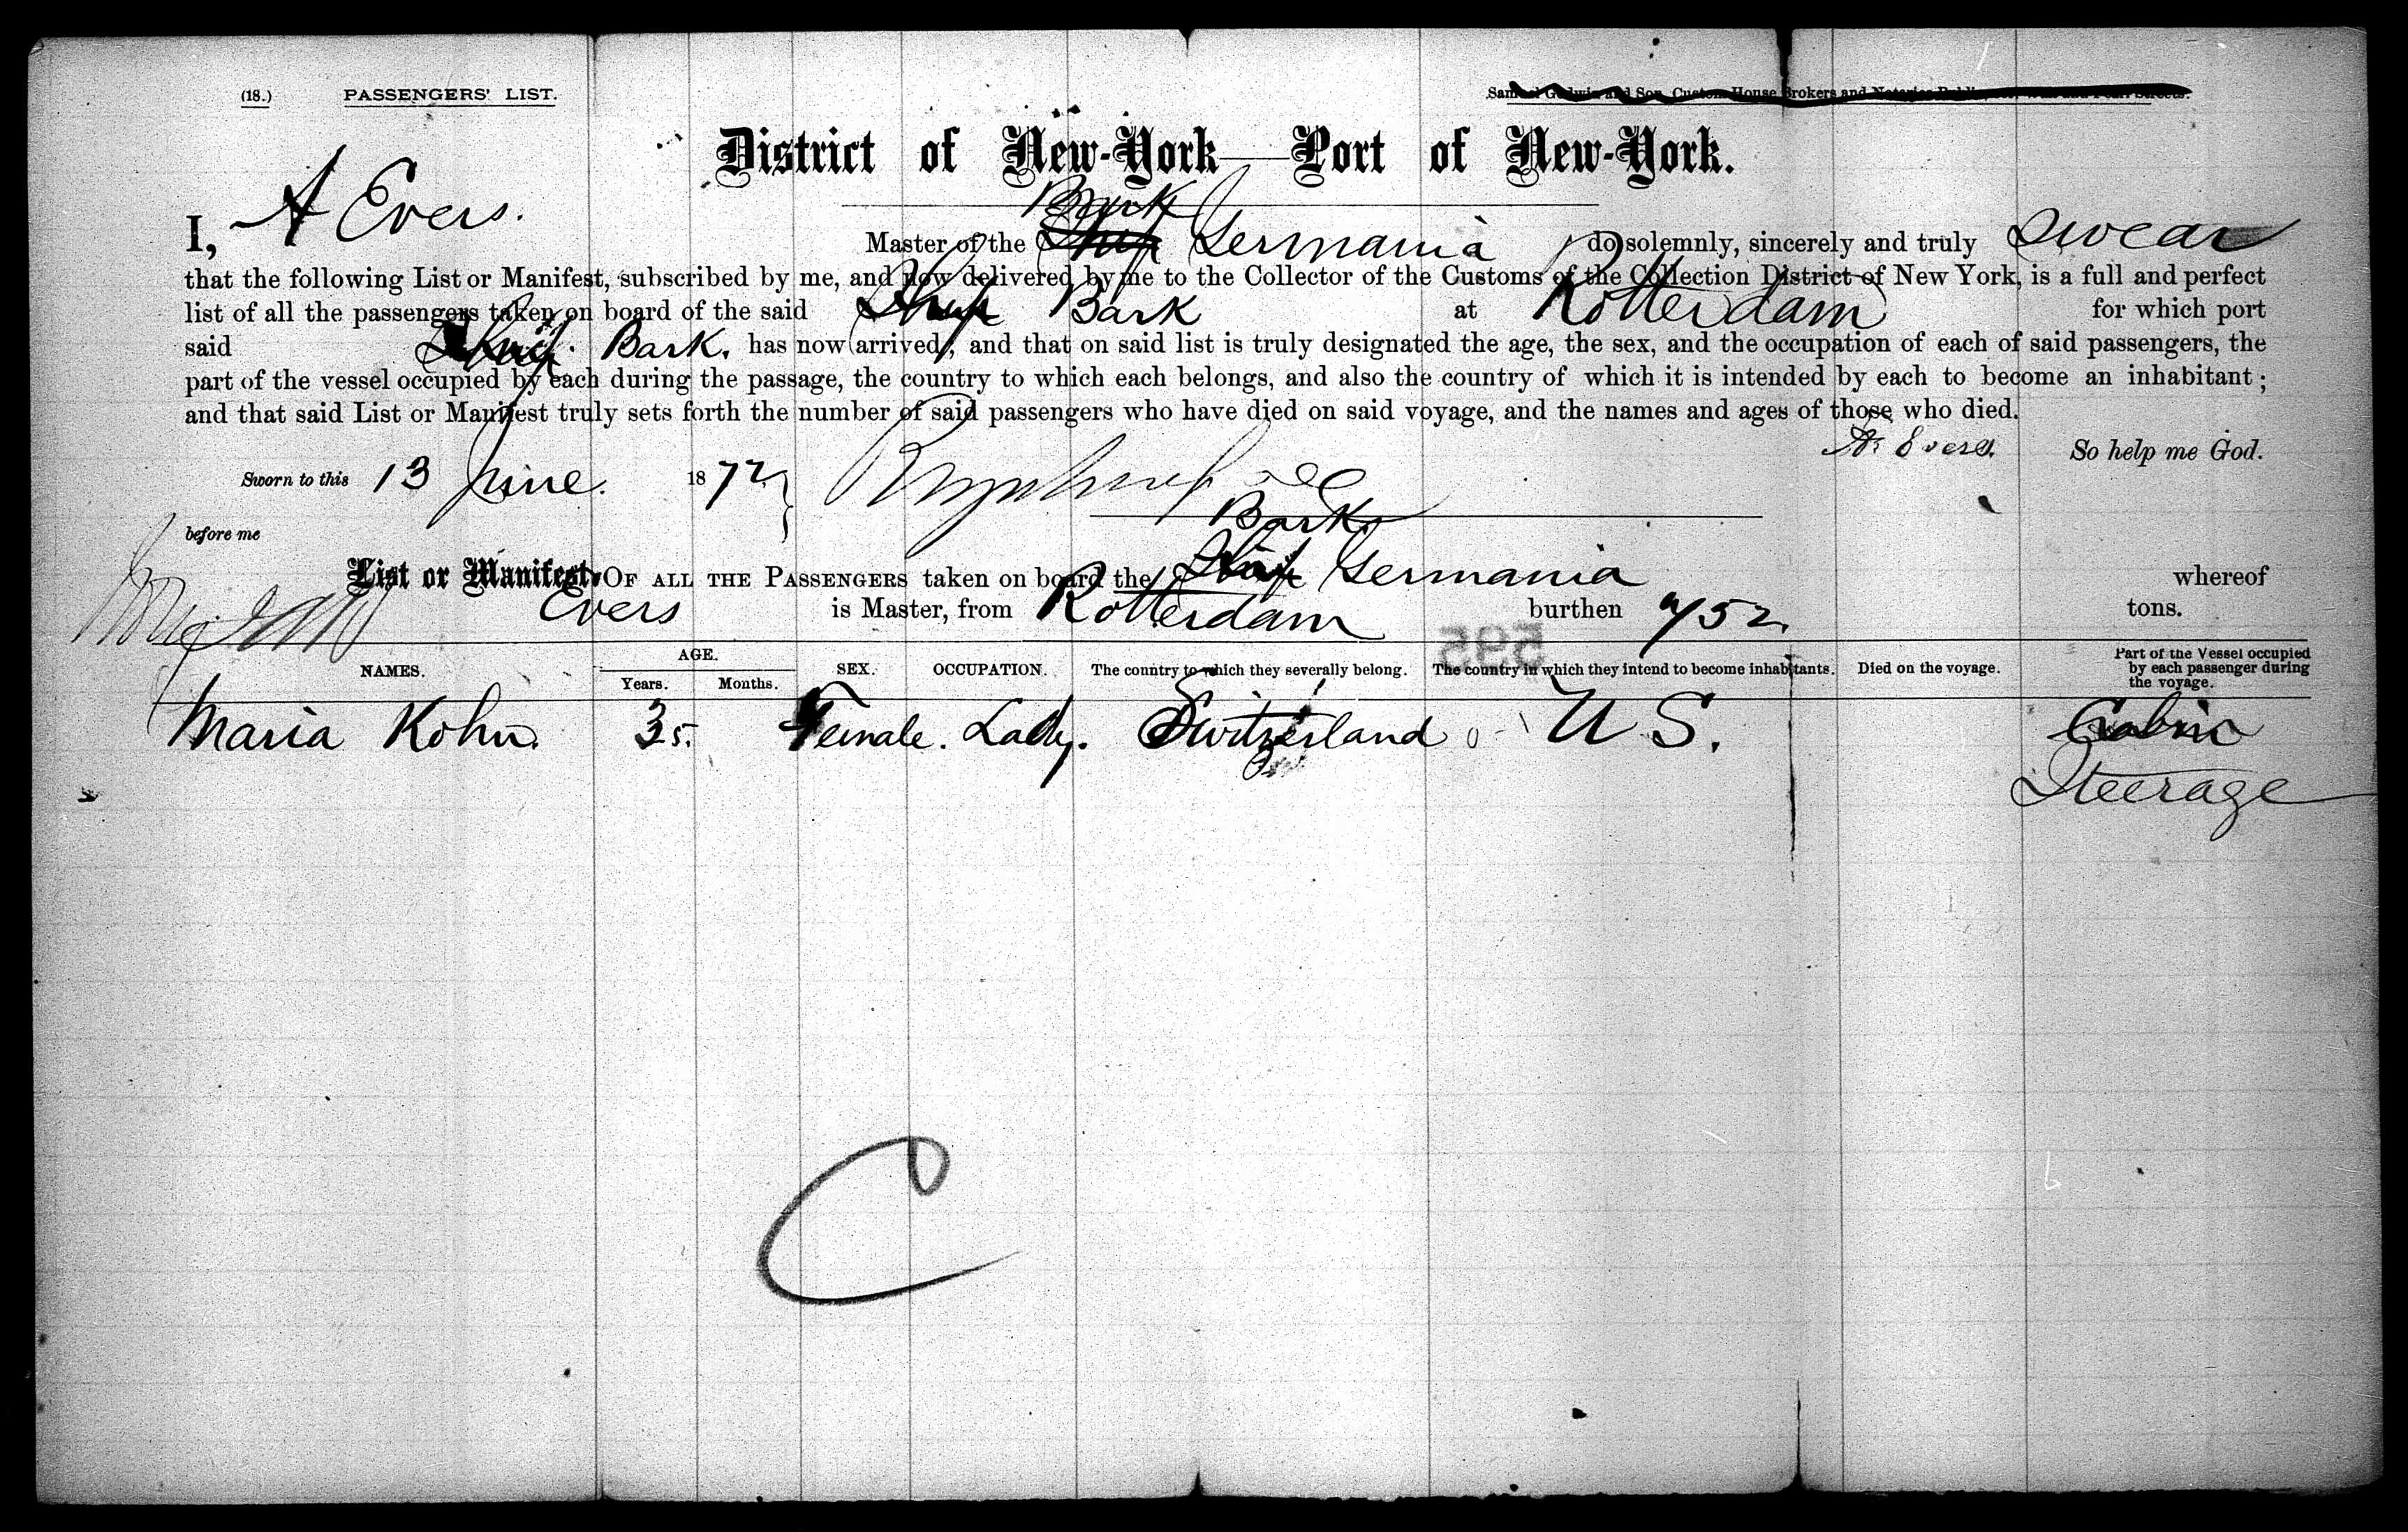 (18.) PASSENGERS' LIST.
Samuel Godwin and Son, Custom House Brokers and Notaries Public,
District of New-York—Port of New-York.
Bark
I, A Evers. Master of the Ship Germania do solemnly, sincerely and truly swear
that the following List or Manifest, subscribed by me, and now delivered by me to the Collector of the Customs of the Collection District of New York, is a full and perfect
list of all the passengers taken on board of the said Ship Bark at Rotterdam for which port
said Ship. Bark. has now arrived; and that on said list is truly designated the age, the sex, and the occupation of each of said passengers, the
part of the vessel occupied by each during the passage, the country to which each belongs, and also the country of which it is intended by each to become an inhabitant;
and that said List or Manifest truly sets forth the number of said passengers who have died on said voyage, and the names and ages of those who died.
A. Evers. So help me God.
Sworn to this 13 June. 1872
before me
Bark
List or Manifest, OF ALL THE PASSENGERS taken on board the Ship Germania whereof
Evers is Master, from Rotterdam burthen 752. tons.
595
NAMES. AGE. Years. Months. SEX. OCCUPATION. The country to which they severally belong. The country in which they intend to become inhabitants. Died on the voyage. Part of the Vessel occupied by each passenger during the voyage.
Maria Kohn. 35. Female. Lady. Switzerland U S. Cabin
Steerage
C